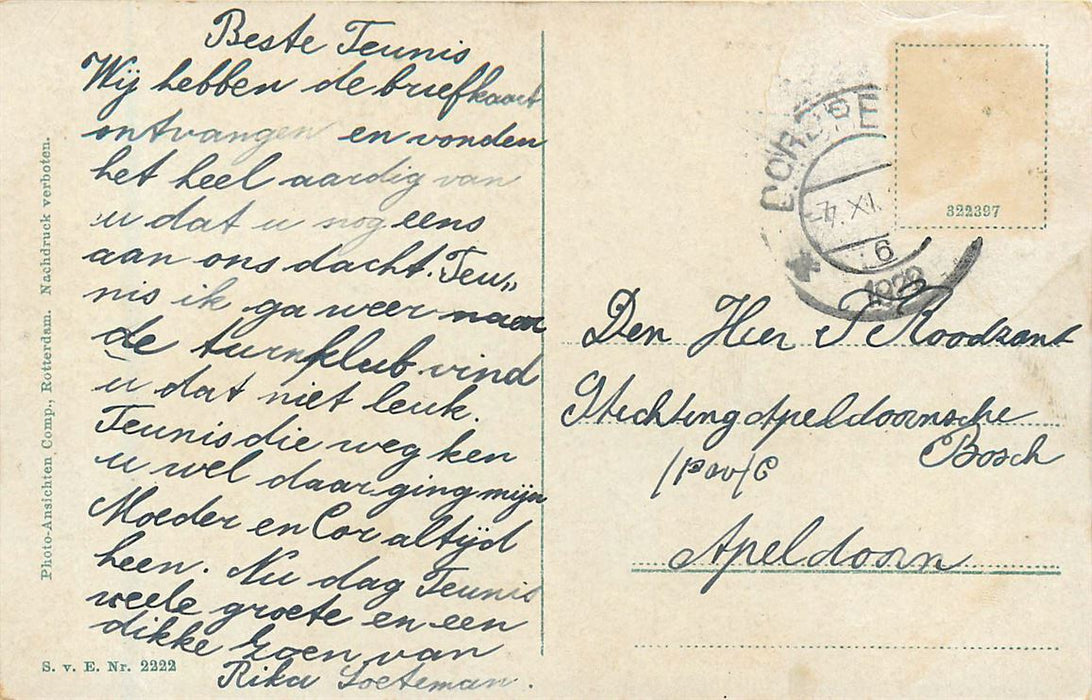 Beste Teunis
Wij hebben de briefkaart
ontvangen en vonden
het heel aardig van
u dat u nog eens
aan ons dacht. Teu„
nis ik ga weer naar
de turnklub vind
u dat niet leuk.
Teunis die weg ken
u wel daar ging mijn
Moeder en Cor altijd
heen. Nu dag Teunis
veele groete en een
dikke zoen van
Rika Soeteman.
Photo-Ansichten Comp., Rotterdam. Nachdruck verboten.
S. v. E. Nr. 2222
322397
7. XI.
6
1922
Den Heer T Roodzant
Stichting Apeldoornsche
Bosch
Apeldoorn